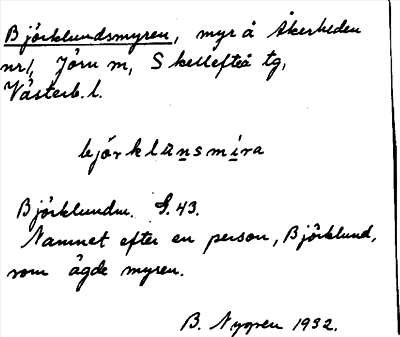 Björklundsmyren, myr å Åkerheden
nr1, Jörn sn, Skellefteå tg,
Västerb. l.
björklansmira
Björklundm. G. 43.
Namnet efter en person, Björklund,
som ägde myren.
B. Nygren 1932.